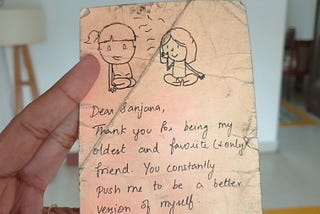 Dear Sanjana,
Thank you for being my
oldest and favorite (& only)
friend. You constantly
push me to be a better
version of myself.